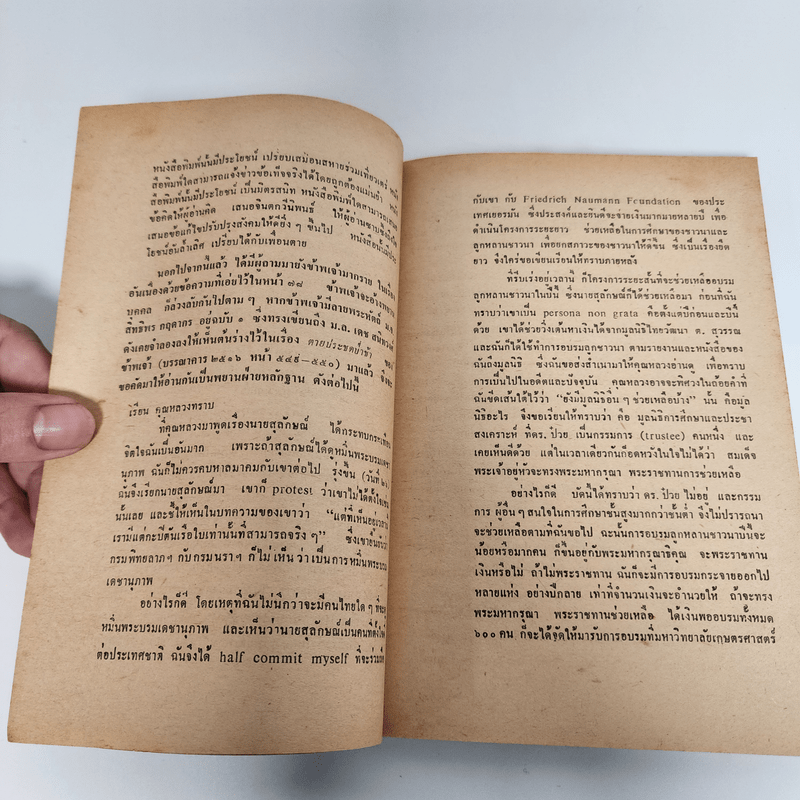 หนังสือพิมพ์นั้นมีประโยชน์ เปรียบเสมือนสหายร่วมเที่ยวเตร่ หนัง
สือพิมพ์ใดสามารถแจ้งข่าวข้อเท็จจริงได้โดยถูกต้องแม่นยำ หนัง
สือพิมพ์นั้นมีประโยชน์ เป็นมิตรสนิท หนังสือพิมพ์ใดสามารถเสนอ
ข้อคิดให้ผู้อ่านคิด เสนอจินตกวีนิพนธ์ ให้ผู้อ่านซาบซึ้ง
เสนอข้อแก้ไขปรับปรุงสังคมให้ดียิ่ง ๆ ขึ้นไป หนังสือนั้นมีประ
โยชน์อันล้ำเลิศ เปรียบได้กับเพื่อนตาย
นอกไปจากนี้แล้ว ได้มีผู้ถามมายังข้าพเจ้ามากราย ในเรื่อง
อันเนื่องด้วยข้อความที่เอ่ยไว้ในหน้า ๗๘ ข้าพเจ้าจะอ้าง
บุคคล ก็ล่วงลับกันไปตาม ๆ หากข้าพเจ้ามีลายพระหัตถ์ ม.จ.
สิทธิพร กฤดากร อยู่ฉบับ ๑ ซึ่งทรงเขียนถึง ม.ล. เดช สนิทวงศ์
ดังเคยจำลองลงให้เห็นต้นร่างไว้ในเรื่อง คายประชดย่ำช้า ของ
ข้าพเจ้า (บรรณาคาร ๒๕๑๖ หน้า ๕๔๙–๕๕๐) มาแล้ว จึงจะ
ขอคัดมาให้อ่านกันเป็นพยานฝ่ายหลักฐาน ดังต่อไปนี้
เรียน คุณหลวงทราบ
ที่คุณหลวงมาพูดเรื่องนายสุลักษณ์ ได้กระทบกระเทือน
จิตใจฉันเป็นอันมาก เพราะถ้าสุลักษณ์ได้ดูหมิ่นพระบรมเดชา
นุภาพ ฉันก็ไม่ควรคบหาสมาคมกับเขาต่อไป รุ่งขึ้น (วันที่
ฉันจึงเรียกนายสุลักษณ์มา เขาก็ protest ว่าเขาไม่ได้ตั้งใจเช่น
นั้นเลย และชี้ให้เห็นในบทความของเขาว่า “แต่ที่เห็นอยู่
เรามีแต่กะปิตันเรือใบเท่านั้นที่สามารถจริง ๆ” ซึ่งเขายืนยันว่า
กรมพิทยลาภฯ กับกรมนราฯ ก็ไม่เห็นว่าเป็นการหมิ่นพระบรม
เดชานุภาพ
อย่างไรก็ดี โดยเหตุที่ฉันไม่นึกว่าจะมีคนไทยใด ๆ ที่จะ
หมิ่นพระบรมเดชานุภาพ และเห็นว่านายสุลักษณ์เป็นคนที่ตั้งใจดี
ต่อประเทศชาติ ฉันจึงได้ half commit myself ที่จะร่วมมือ
กับเขา กับ Friedrich Naumann Fcundation ของประ
เทศเยอรมัน ซึ่งประสงค์และยินดีจะจ่ายเงินมากมายหลายปี เพื่อ
ดำเนินโครงการระยะยาว ช่วยเหลือในการศึกษาของชาวนาและ
ลูกหลานชาวนา เพื่อยกสภาวะของชาวนาให้ดีขึ้น ซึ่งเป็นเรื่องยืด
ยาว จึงใคร่ขอเขียนเรียนให้ทราบภายหลัง
ที่รีบเร่งอยู่เวลานี้ ก็โครงการระยะสั้นที่จะช่วยเหลืออบรม
ลูกหลานชาวนาในปีนี้ ซึ่งนายสุลักษณ์ก็ได้ช่วยเหลือมา ก่อนที่ฉัน
ทราบว่าเขาเป็น persona non grata คือตั้งแต่ปีก่อนและปีนี้
ด้วย เขาได้ช่วยวิ่งเต้นหาเงินได้จากมูลนิธิไทยวัฒนา ต. สุวรรณ
และฉันก็ได้ใช้ทำการอบรมลูกชาวนา ตามรายงานและหนังสือของ
ฉันถึงมูลนิธิ ซึ่งฉันขอส่งสำเนามาให้คุณหลวงอ่านดู เพื่อทราบ
การเป็นไปในอดีตและปัจจุบัน คุณหลวงอาจจะพิศวงในถ้อยคำที่
ฉันขีดเส้นใต้ไว้ว่า “ยังมีมูลนิธิอื่น ๆ ช่วยเหลือบ้าง” นั้น คือมูล
นิธิอะไร จึงขอเรียนให้ทราบว่า คือ มูลนิธิการศึกษาและประชา
สงเคราะห์ ที่ดร. ป๋วย เป็นกรรมการ (trustee) คนหนึ่ง และ
เคยเห็นดีด้วย แต่ในเวลาเดียวกันก็อดหวังในใจไม่ได้ว่า สมเด็จ
พระเจ้าอยู่หัวจะทรงพระมหากรุณา พระราชทานการช่วยเหลือ
อย่างไรก็ดี บัดนี้ได้ทราบว่า ดร. ป๋วย ไม่อยู่ และกรรม
การ ผู้อื่น ๆ สนใจในการศึกษาชั้นสูงมากกว่าชั้นต่ำ จึงไม่ปรารถนา
จะช่วยเหลือตามที่ฉันขอไป ฉะนั้นการอบรมลูกหลานชาวนาปีนี้จะ
น้อยหรือมากคน ก็ขึ้นอยู่กับพระมหากรุณาธิคุณ จะพระราชทาน
เงินหรือไม่ ถ้าไม่พระราชทาน ฉันก็จะมีการอบรมกระจายออกไป
หลายแห่ง อย่างปีกลาย เท่าที่จำนวนเงินจะอำนวยให้ ถ้าจะทรง
พระมหากรุณา พระราชทานช่วยเหลือ ได้เงินพออบรมทั้งหมด
๖๐๐ คน ก็จะได้จัดให้มารับการอบรมที่มหาวิทยาลัยเกษตรศาสตร์